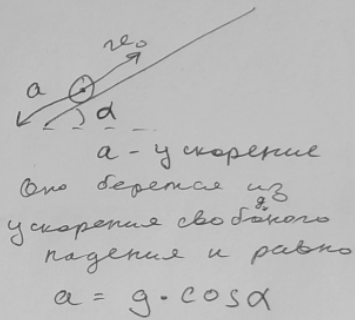 v₀
a
α
a - ускорение
Оно берется из
ускорения свободного g.
падения и равно
a = g · cosα